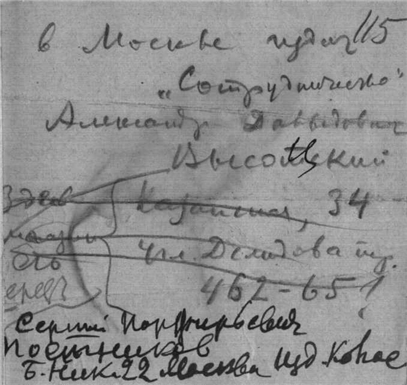 115
в Москве издат
„Сотрудничество"
Александр Давыдович
Высоцкий
Здесь Казанская, 34
магазин уг. Демидова пер.
его
462-651
Сергий Порфирьевич
Постников
Б. Ник. 22 Москва Изд. Колос